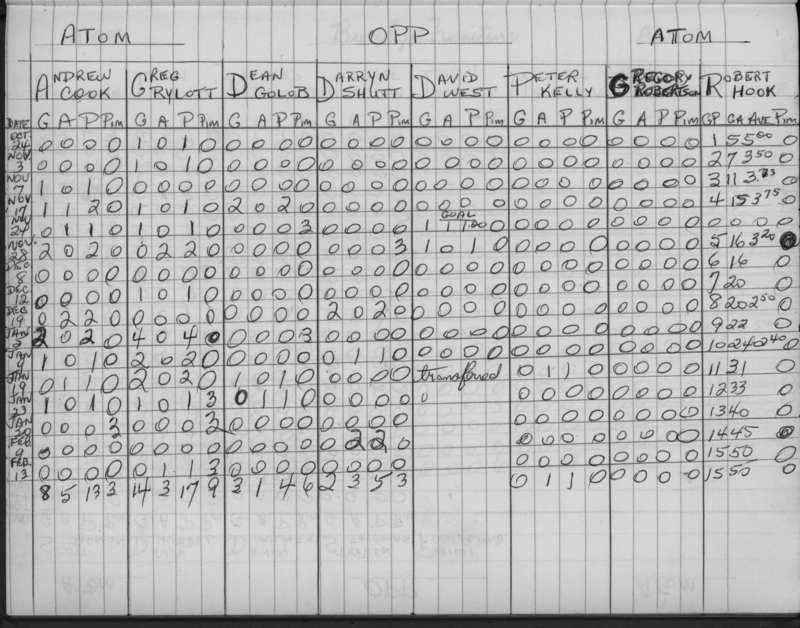 ATOM OPP ATOM
ANDREW COOK GREG RYLOTT DEAN GOLOB DARRYN SHUTT DAVID WEST PETER KELLY GREGORY ROBERTSON ROBERT HOOK
DATE G A P Pim G A P Pim G A P Pim G A P Pim G A P Pim G A P Pim G A P Pim GP GA AVE Pim
OCT. 24 0 0 0 0 1 0 1 0 0 0 0 0 0 0 0 0 0 0 0 0 0 0 0 0 0 0 0 0 1 5 5.00 0
NOV. 3 0 0 0 0 1 0 1 0 0 0 0 0 0 0 0 0 0 0 0 0 0 0 0 0 0 0 0 0 2 7 3.50 0
NOV 7 1 0 1 0 0 0 0 0 0 0 0 0 0 0 0 0 0 0 0 0 0 0 0 0 0 0 0 0 3 11 3.73 0
NOV 17 1 1 2 0 1 0 1 0 2 0 2 0 0 0 0 0 0 0 0 0 0 0 0 0 0 0 0 0 4 15 3.75 0
GOAL
NOV 24 0 1 1 0 1 0 1 0 0 0 0 3 0 0 0 0 1 1 1.00 0 0 0 0 0 0 0 0 0 0 0 0 0
NOV. 28 2 0 2 0 0 2 2 0 0 0 0 0 0 0 0 3 1 0 1 0 0 0 0 0 0 0 0 0 5 16 3.20
DEC 8 0 0 0 0 0 0 0 0 0 0 0 0 0 0 0 0 0 0 0 0 0 0 0 0 0 0 0 0 6 16 0
DEC. 12 0 0 0 0 1 0 1 0 0 0 0 0 0 0 0 0 0 0 0 0 0 0 0 0 0 0 0 0 7 20 0
DEC. 19 0 2 2 0 0 0 0 0 0 0 0 0 2 0 2 0 0 0 0 0 0 0 0 0 0 0 0 0 8 20 2.50 0
JAN 2 0 2 0 4 0 4 0 0 0 0 3 0 0 0 0 0 0 0 0 0 0 0 0 0 0 0 0 9 22 0
JAN 1 0 1 0 2 0 2 0 0 0 0 0 0 1 1 0 0 0 0 0 0 0 0 0 0 0 0 0 10 24 2.40 0
JAN 19 0 1 1 0 2 0 2 0 1 0 1 0 0 0 0 0 transferred 0 1 1 0 0 0 0 0 11 31 0
JAN 23 1 0 1 0 1 0 1 3 0 1 1 0 0 0 0 0 0 0 0 0 0 0 0 0 0 12 33 0
JAN 30 0 0 0 3 0 0 0 3 0 0 0 0 0 0 0 0 0 0 0 0 0 0 0 0 13 40 0
FEB. 9 0 0 0 0 0 0 0 0 0 0 0 0 0 2 2 0 0 0 0 0 0 0 0 0 14 45
FEB. 13 0 0 0 0 0 1 1 3 0 0 0 0 0 0 0 0 0 0 0 0 0 0 0 0 15 50 0
8 5 13 3 14 3 17 9 3 1 4 6 2 3 5 3 0 1 1 0 0 0 0 0 15 50 0